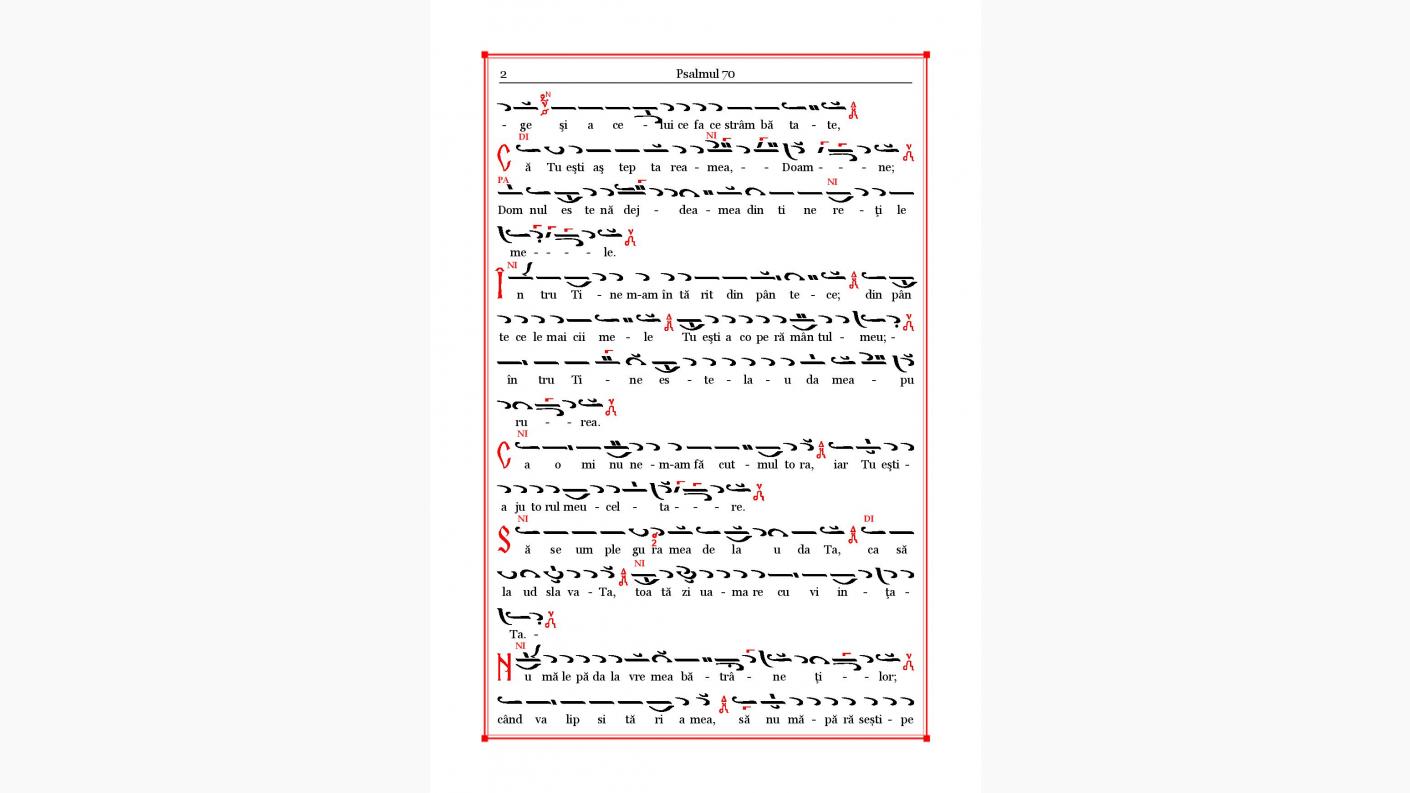 2 Psalmul 70
N
- ge şi a ce - lui ce fa ce strâm bă ta - te,
DI NI
C ă Tu eşti aş tep ta rea - mea, - - Doam - - - ne;
PA NI
Dom nul es te nă dej - dea - mea din ti ne re - ţi le
me - - - - le.
NI
Î n tru Ti - ne m-am în tă rit din pân te - ce; din pân
te ce le mai cii me - le Tu eşti a co pe ră mân tul - meu; -
în tru Ti - ne es - te - la - u da mea - pu
ru - - rea.
NI
C a o mi nu ne - m-am fă cut - mul to ra, iar Tu eşti -
a ju to rul meu - cel - ta - - - re.
NI DI
S ă se um ple gu ra mea de la u da Ta, ca să
NI
la ud sla va - Ta, toa tă zi ua - ma re cu vi in - ţa -
Ta. -
NI
N u mă le pă da la vre mea bă - trâ - ne ţi - - lor;
când va lip si tă ri a mea, să nu mă - pă ră sești - pe